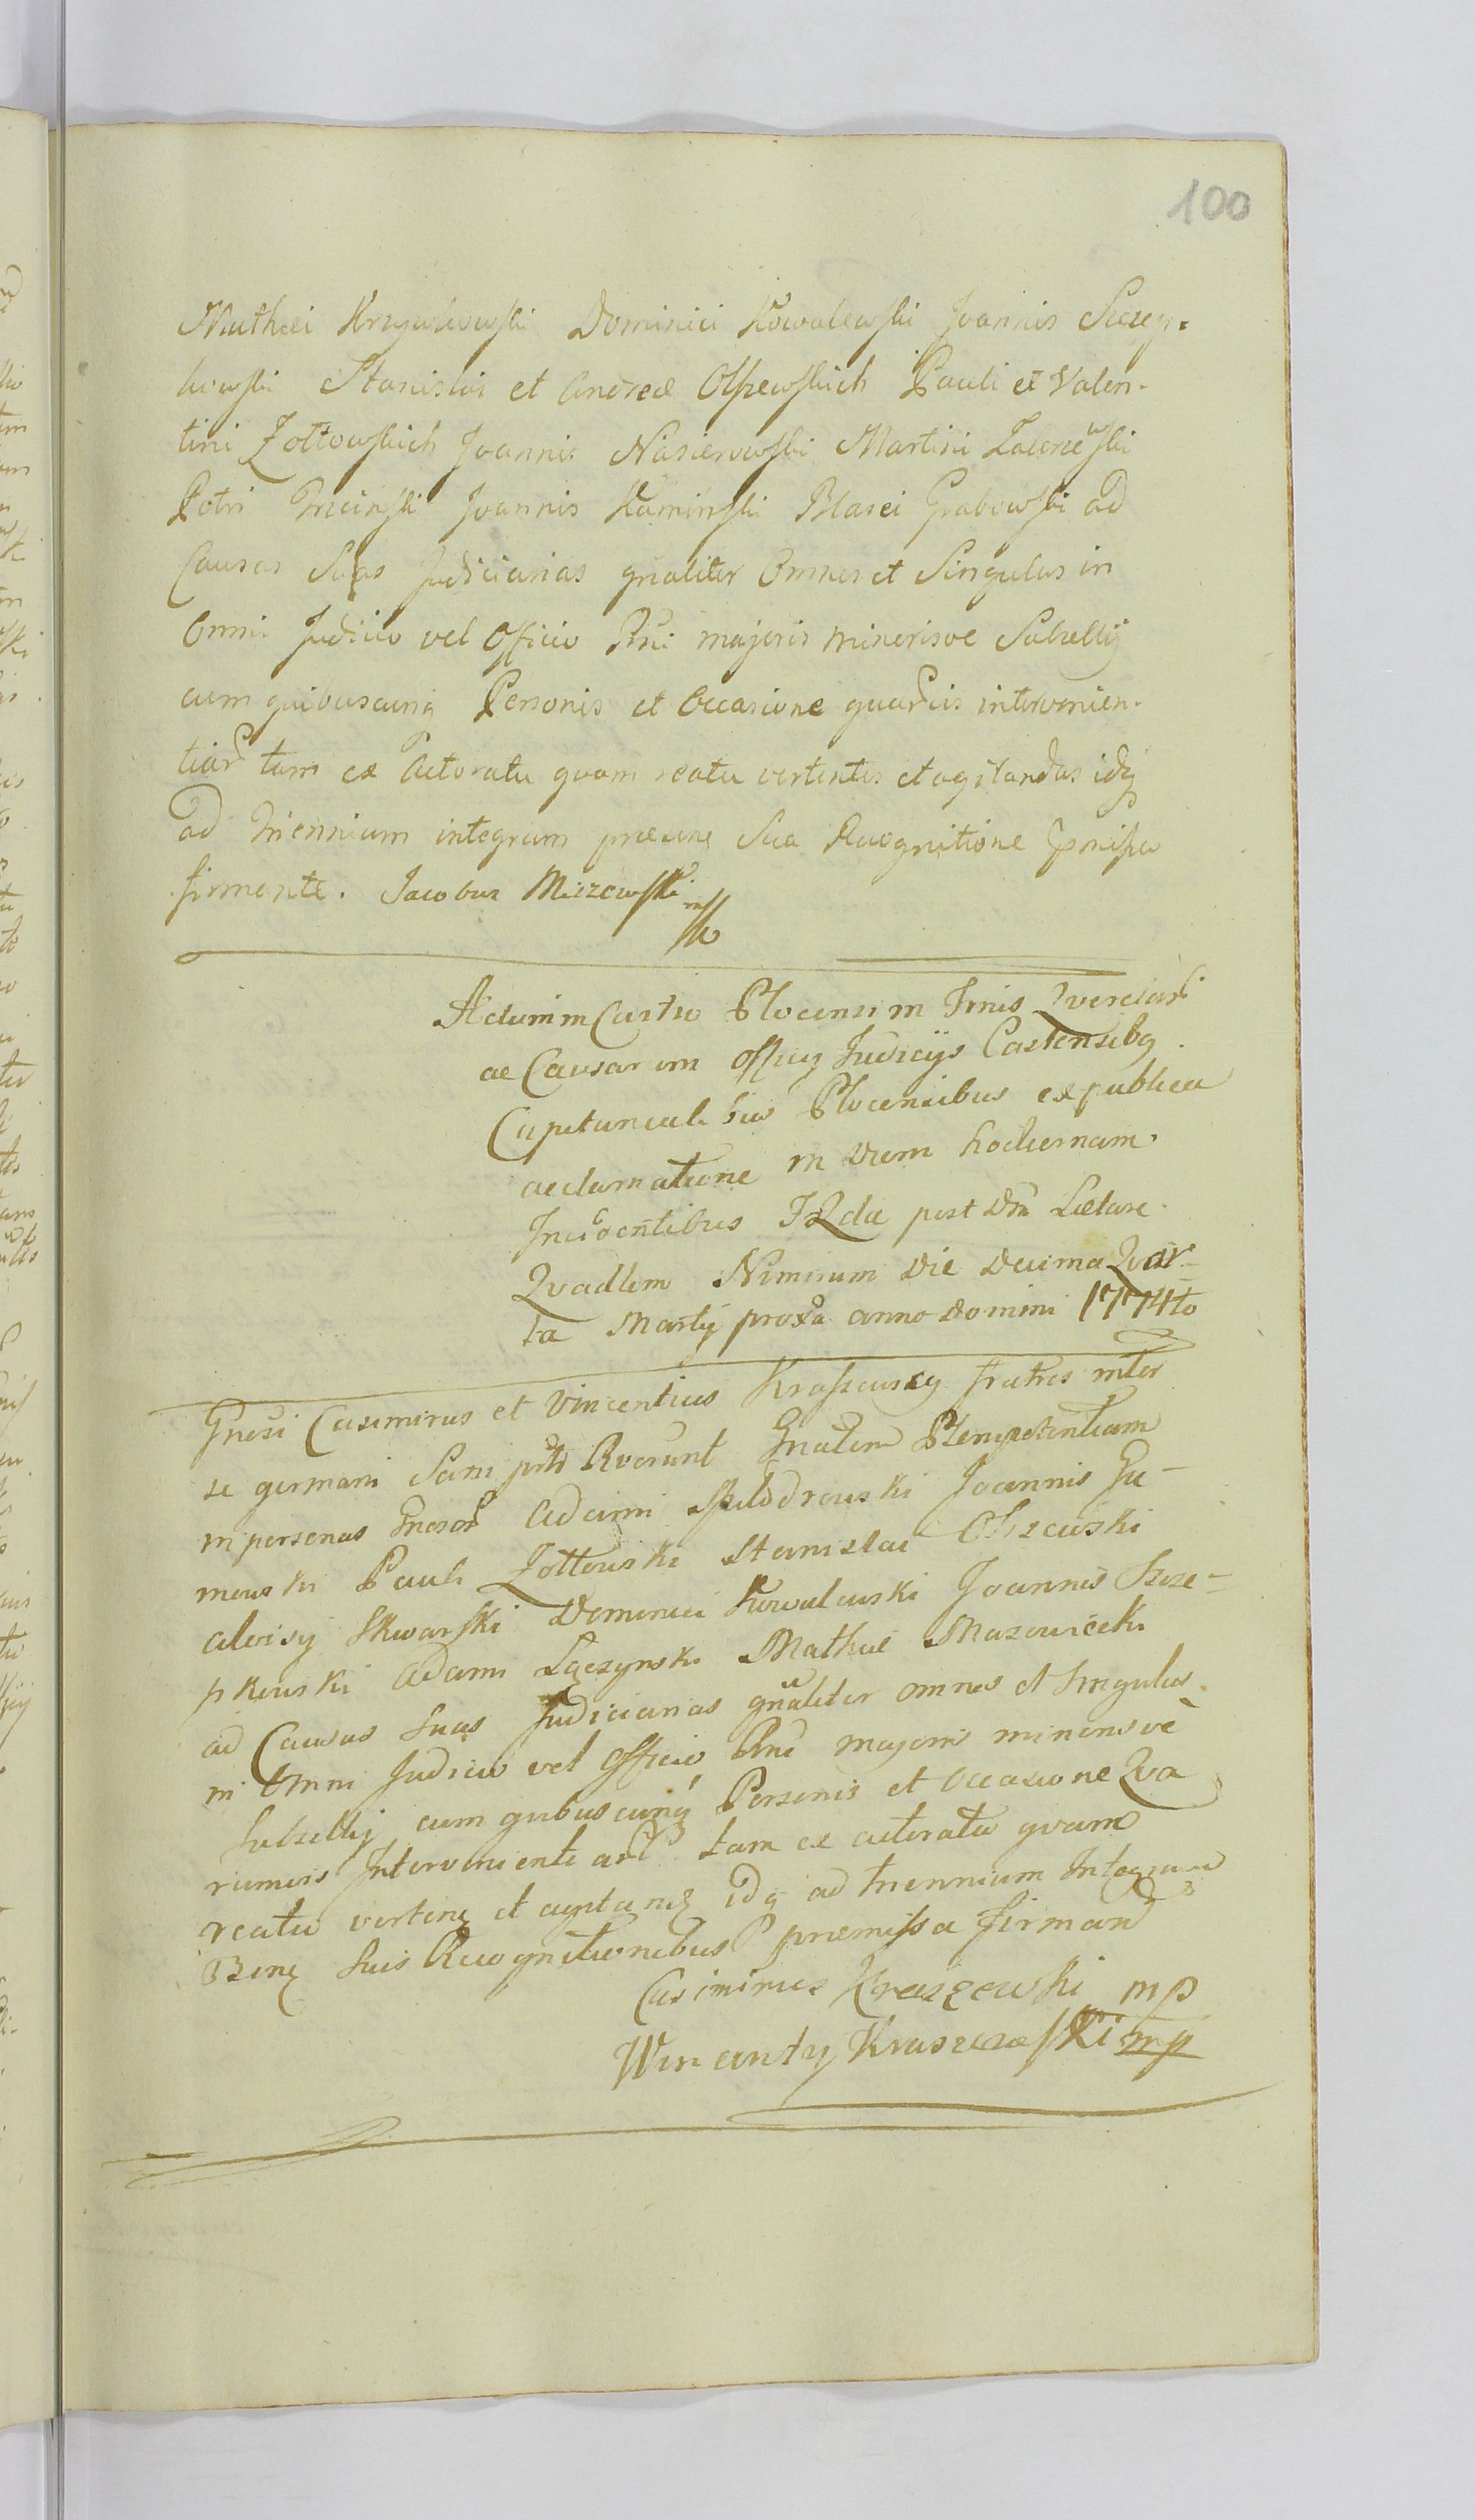 100
Mathei Krzywkowski Dominici Kowalewski Joannis Szczep-
kowski Stanislai et Andreæ Olszewskich Pauli et Valen-
tini Zołtowskich Joannis Nasierowski Martini
Petri Joannis Kaminski Blasei Grabowski ad
Causas Suas Judiciarias gnaliter Omnes et Singulas in
Omni Judicio vel Officio Rni majoris minorisve Subsellij
cum quibuscunq Personis et Occasione quarvis intervenien-
tiar tam ex Actoratu quam reatu vertentes et agitandas idq
ad triennium integrum præsene Sua Recognitione præmissa
firmante. Jacobus Miszewski mp
Actum in Castro Plocensi in Trnis Querelarū
ac Causarum officij Judicijs Castrensibq
Capitanealibus Plocensibus ex publica
acclamatione in Diem hodiernam
Incidentibus F2da post Dnm Lætare
Quadlem Nimirum Die Decima Quar-
ta Martij proxa anno Domini 1774to
Gnosi Casimirus et Vincentius Kraszewscy fratres inter
se germani Sani prts Rverunt Gnalem Plenipotentiam
in personas Gnosor Adami Joannis Gu-
mowski Pauli Zołtowski Stanislai Olszewski
aloisy Skwarski Dominici Kowalewski Joannis Szcze-
pkowski Adami Łączynski Mathæi Mazowiecki
ad Causas Suas Judiciarias gnaliter omnes et Singulas
in Omni Judicio vel Officio Rni majoris minorisve
Subsellij cum quibuscunq Personis et Occasione Qva
rumvis Interveniente ar tam ex actoratu qvam
reatu verten et agitan idq ad triennium Integrum
Bene Suis Recognitionibus præmissa firman
Casimirus Kraszewski mp
Wincenty Kraszewski mp